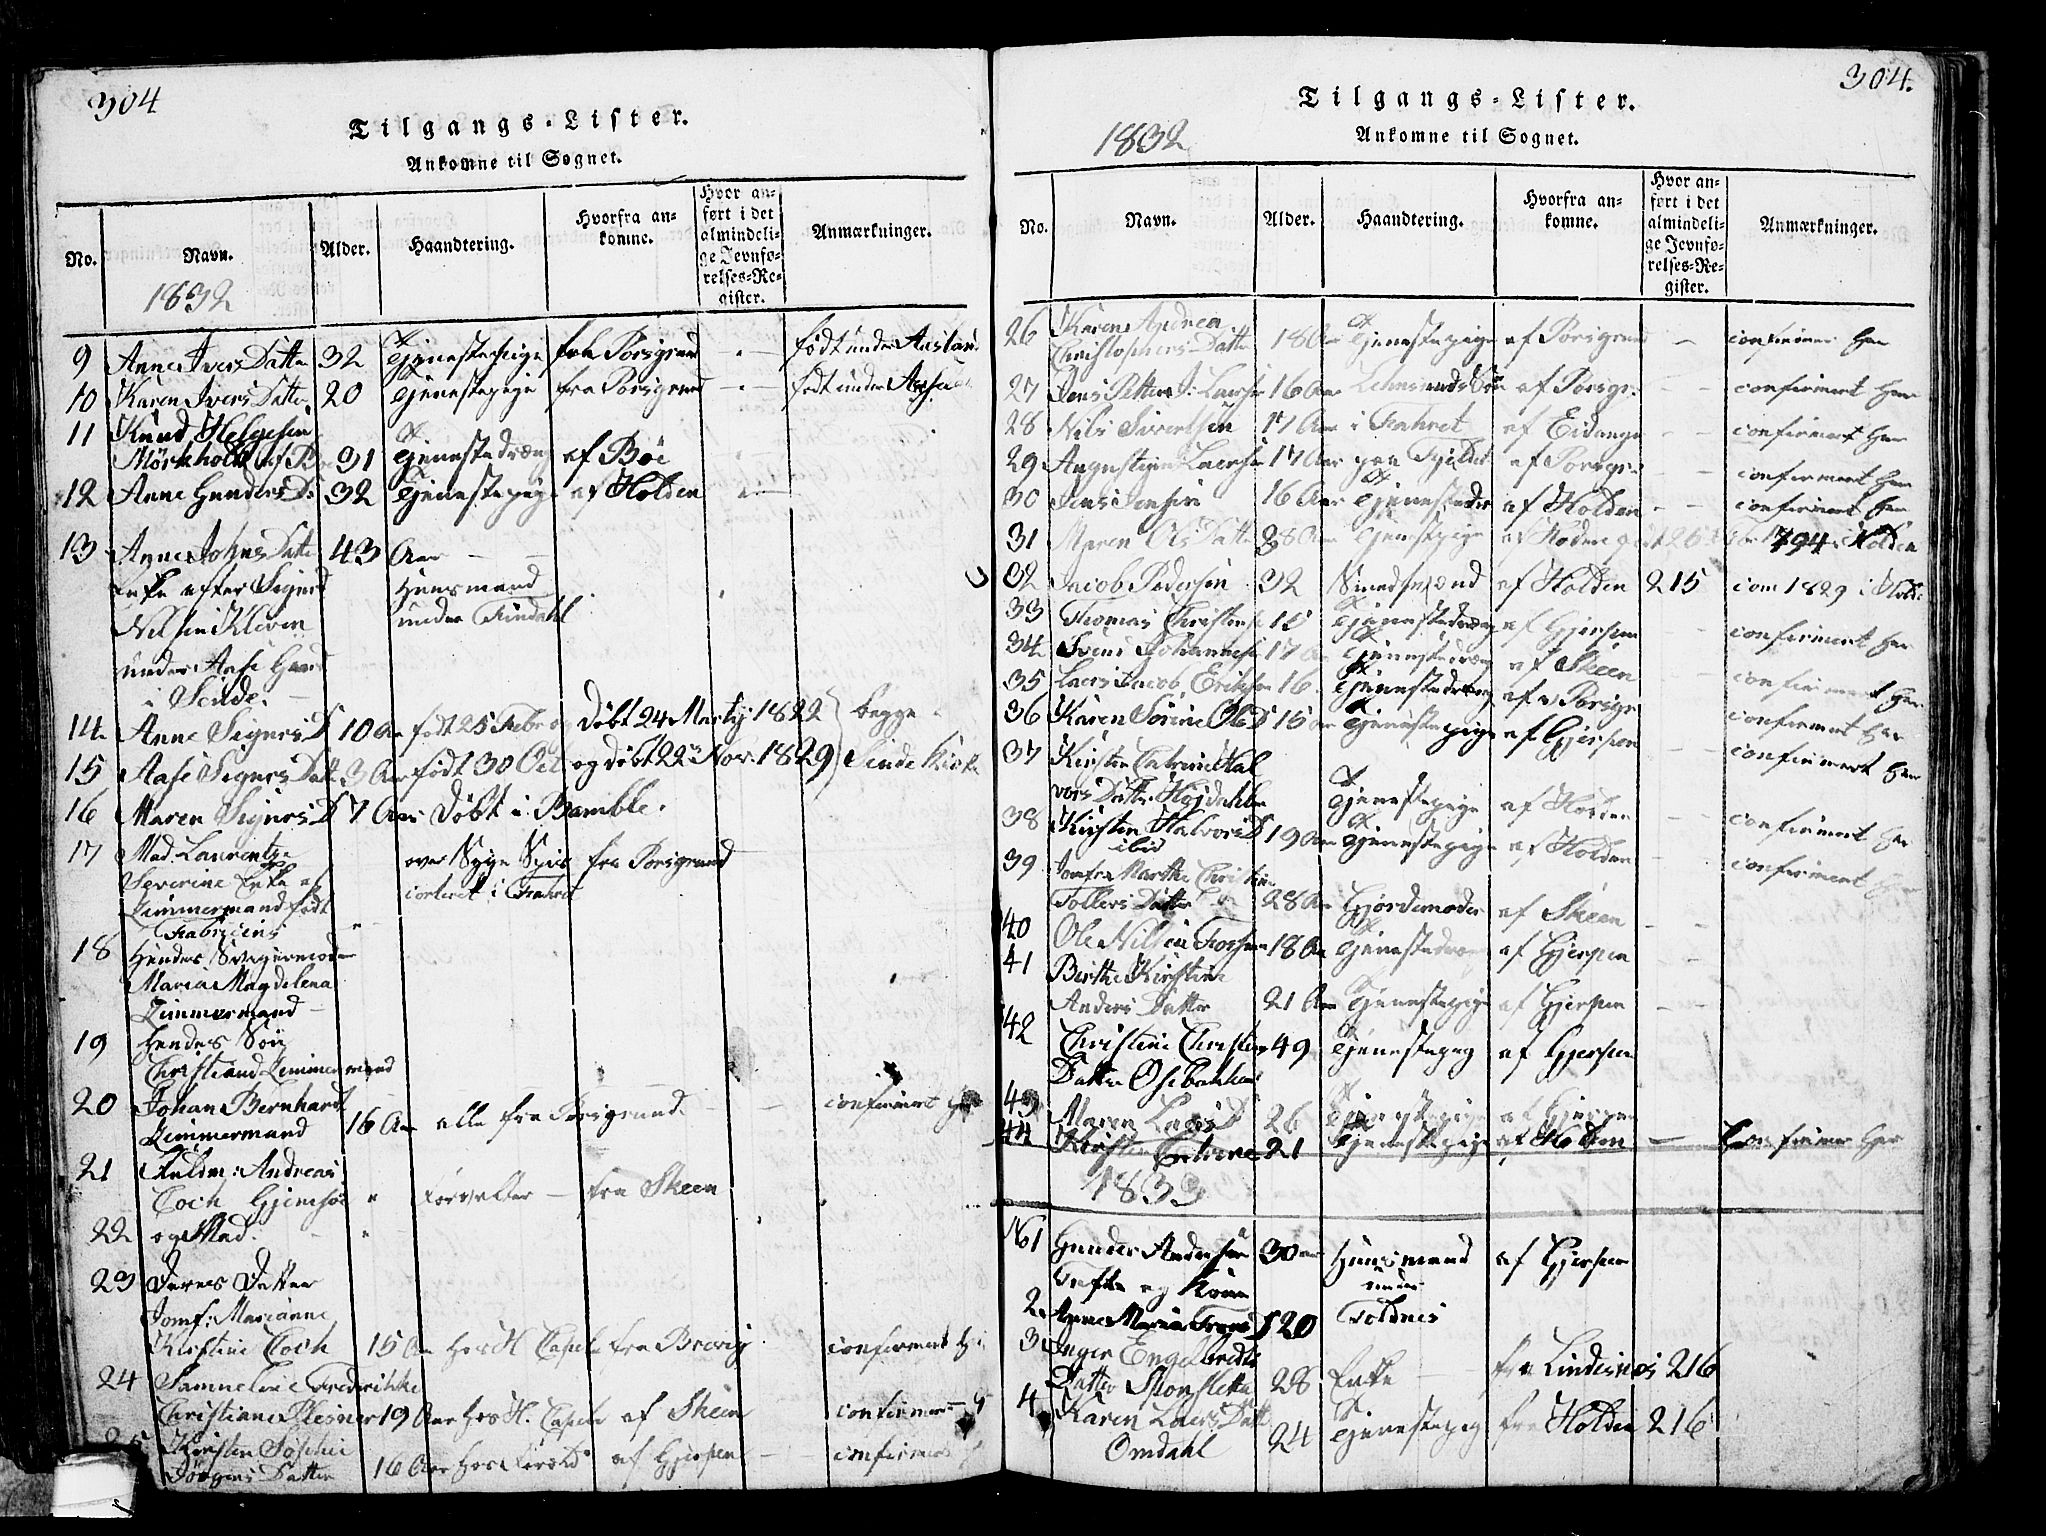 304
Tilgangs-Lister.
Ankomne til Sognet.
No.
Navn.
Alder.
Haandtering.
Hvorfra an-
komne.
Hvor an-
ført i det
almindeli-
ge Jevnfø-
relses-Re-
gister.
Anmærkninger.
1832
9 Anne Ivers Datter 32 Tjenestepige fra Porsgrund født under
10 Karen Ivers Datter 20 Tjenestepige fra Porsgrund født under
11 Knud Helgesen
Mörkhold af Bøe 31 Tjenestedræng af Böe
12 Anne Gunders D: 32 Tjenestepige af Holden
13 Anne Johns Datter 43 Aar
Enke efter Sigurd Huusmand
Nilsen Kleven under Findahl
under Aase Gaard
i Seude.
14 Anne Signers D 10 Aar født 25 Febr og Døbt 24 Martij 1822 begge
15 Aase Signers Datt. 3 Aar født 30 Oct og døbt 22 Nov. 1829 Seude Kirke
16 Maren Signers D 7 Aar Døbt i Bamble.
17 Mad. Laurentze over fra Porsgrund
Severine Enke af i Frahret
Zimmermand født
Fabricius
18 Hendes Svigermoder
Maria Magdelena
Zimmermand
19 Hendes Søn
Christiand Zimmermand
20 Johan Bernhard
Zimmermand 16 Aar alle fra Porsgrund confirmert her
21 Fuldm: Andreas
Coch Gjemsøe Forvalter fra Skeen
22 og Mad.
23 Deres Datter
Jomf: Marianne
Kirstine Coch 15 Aar hos H. Capel fra Brevig confirmert
24 Samueline Frederikke
Christiane Plesner 19 Aar hos H. Capel af Skeen confirmer
25 Kirsten Sophie
Jörgens Datter 16 Aar hos af Gjerpen confirmer
304.
Tilgangs-Lister.
1832
Ankomne til Sognet.
No.
Navn.
Alder.
Haandtering.
Hvorfra an-
komne.
Hvor an-
ført i det
almindeli-
ge Jevnfø-
relses-Re-
gister.
Anmærkninger.
26 Karen Andrea
Christophers Datter 18 Aar Tjenestepige af Porsgrund confirmer her
27 Jens Petter J: Laersen 16 Aar Lehnsmands Søn af Porsgr: confirmert her
28 Nils Sivertsen 17 Aar i Frahret af Eidanger confirmert her
29 Augustinus Laersen 17 Aar paa af Porsgr: confirmert her
30 Jens Jensen 16 Aar Tjenestedr af Holden confirmert her
31 Maren Ols Datter 28 Aar Tjenestepige af Holden 1794 Holden
32 Jacob Pedersen 32 Smedsvend af Holden 215 com 1829 i Holde
33 Thomas Christens 15 Tjenestedræng af Gjerpen confirmert her
34 Svend Johannesen 17 Aar Tjenestedræng af Skeen confirmert her
35 Laers Jacob Eriksen 16 Tjenestedræng af Porsgr confirmert her
36 Karen Sörine Ols D 15 Aar Tjenestepige af Gjerpen confirmert her
37 Kirsten Catrine Hal
vors Datter Højdahlen Tjenestepige af Holden confirmert her
38 Kirsten Halvors D 19 Aar Tjenestepige af Holden confirmert her
ibid
39 Jomfru Marthe Christine
Tollers Datter 28 Aar Gjordemoder af Skeen
40 Ole Nilsen Fossum 18 Aar Tjenestedræng af Gjerpen
41 Birthe Kirstine
Anders Datter 21 Aar Tjenestepige af Gjerpen
42 Christine Christens 49 Tjenestepig af Gjerpen
Datter Osebakken
43 Maren Laers D 26 Tjenestepige af Gjerpen
44 Kirsten Catrine 21 Tjenestepige af Holden Confirmer her
1833
No 1 Gunder Andersen 30 aar Huusmand af Gjerpen
og Kone under
2 Anne Maria Frans D 20 Toldnes
3 Inger Engelbredts
Datter 28 Enke fra Lindesnæs 216
4 Karen Laers Datt.
Omdahl 24 Tjenestepig fra Holden 216